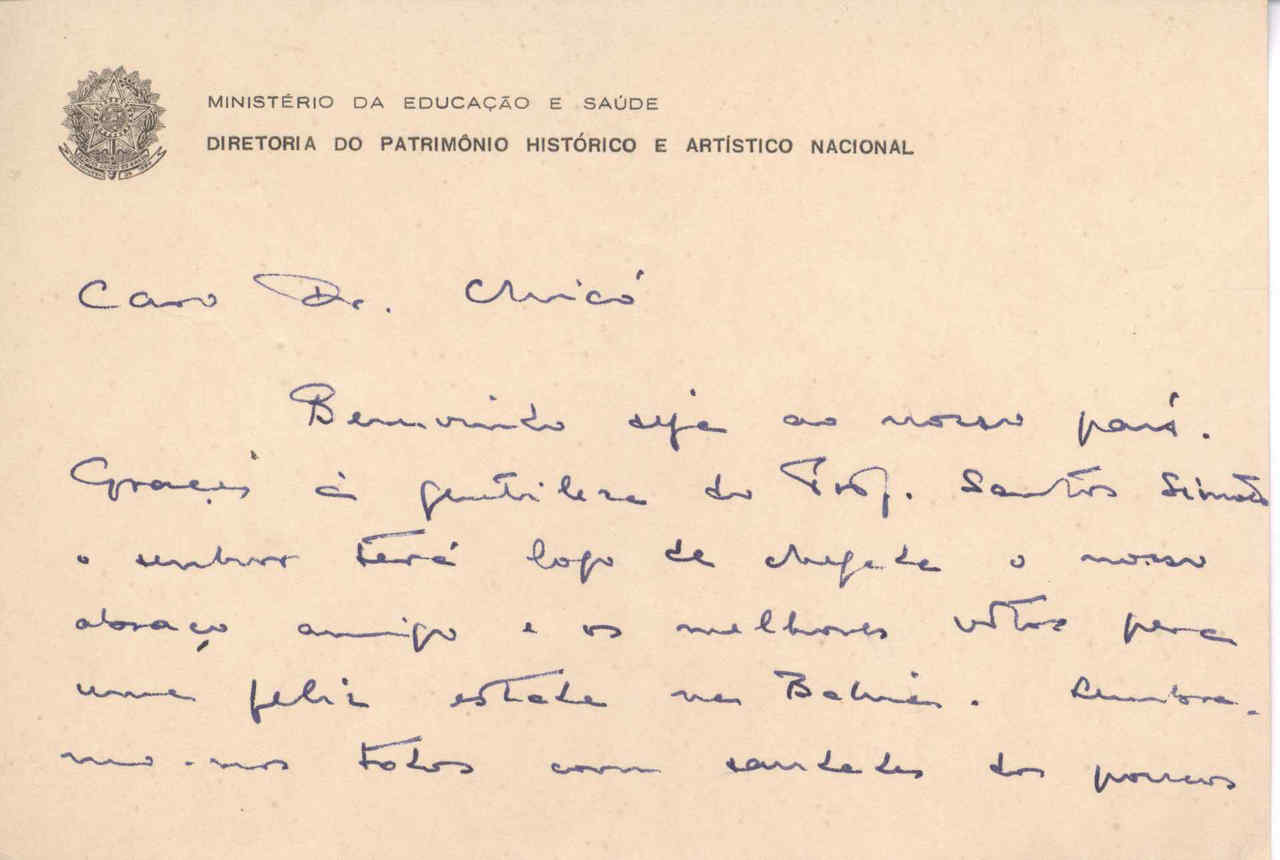 MINISTÉRIO DA EDUCAÇÃO E SAÚDE
DIRETORIA DO PATRIMÔNIO HISTÓRICO E ARTÍSTICO NACIONAL
Caro Dr. Chicó
Bemvindo seja ao nosso país.
Graças à gentileza do Prof. Santos Simões
o senhor terá logo de chegada o nosso
abraço amigo e os melhores vótos para
uma feliz estada na Bahia. Lembra-
mo-nos todos com saudades dos poucos